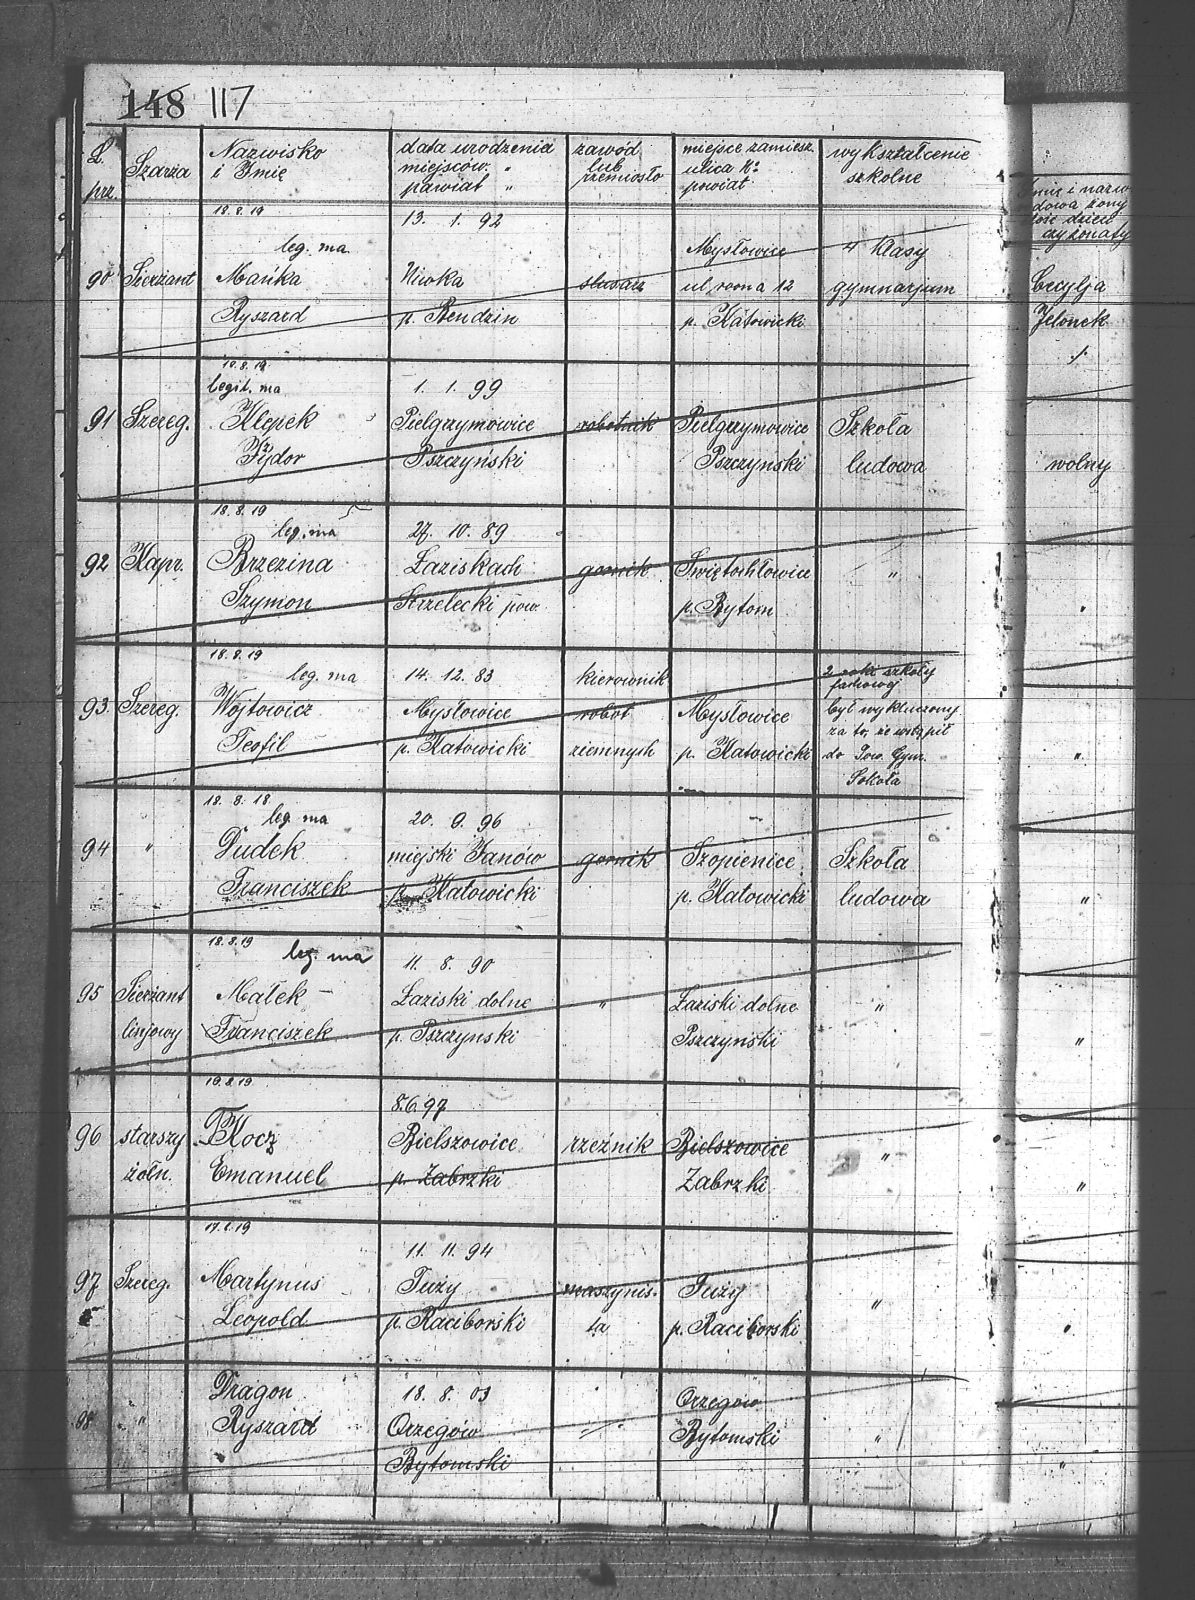 148 117
L. prz.
Szarża
Nazwisko
i Imię
data urodzenia
miejsców. "
powiat "
zawód
lub
rzemiosło
miejsce zamiesz.
ulica №
powiat
wykształcenie
szkolne
Imię i nazw
dowa żony
lość dzieci
czy żonaty
18.8.19
leg. ma
90 Sierżant
Mańka
Ryszard
13. 1. 92
Niwka
p. Bendzin
slusarz
Mysłowice
ul. roona 12
p. Katowicki
4 klasy
gymnazjum
Cecylja
Jelonek
./.
18.8.19
legit. ma
91 Szereg.
Klepek
Izydor
1. 1. 99
Pielgrzymowice
Pszczyński
robotnik
Pielgrzymowice
Pszczyński
Szkoła
ludowa
wolny
18.8.19
leg. ma
92 Kapr.
Brzezina
Szymon
27. 10. 89
Łaziskach
Strzelecki pow.
gornik
Świętochłowice
p. Bytom
"
"
18.8.19
leg. ma
93. Szereg.
Wojtowicz
Teofil
14. 12. 83
Mysłowice
p. Katowicki
kierownik
robot
ziemnych
Mysłowice
p. Katowicki
2 roki szkoły
fachowej
był wykluczony
za to, że wstąpił
do Tow. Gym.
Sokoła
"
18. 8. 18
leg. ma
94 "
Dudek
Franciszek
20. 9. 96
miejski Janów
p. Katowicki
gornik
Szopienice
p. Katowicki
Szkoła
ludowa
"
18.8.19
leg. ma
95 Sierżant
linjowy
Małek
Franciszek
11. 8. 90
Łaziski dolne
p. Pszczynski
"
Łaziski dolne
Pszczyński
"
"
19.8.19
96 starszy
żołn.
Kocz
Emanuel
8.6.97
Bielszowice
p. Zabrzki
rzeźnik
Bielszowice
Zabrzki
"
"
97 Szereg.
Martynus
Leopold
11. 11. 94
Tuży
p. Raciborski
maszynis.
ta
Tuży
p. Raciborski
"
"
98 "
Dragon
Ryszard
18. 8. 03
Orzegów
Bytomski
Orzegów
Bytomski
"
"